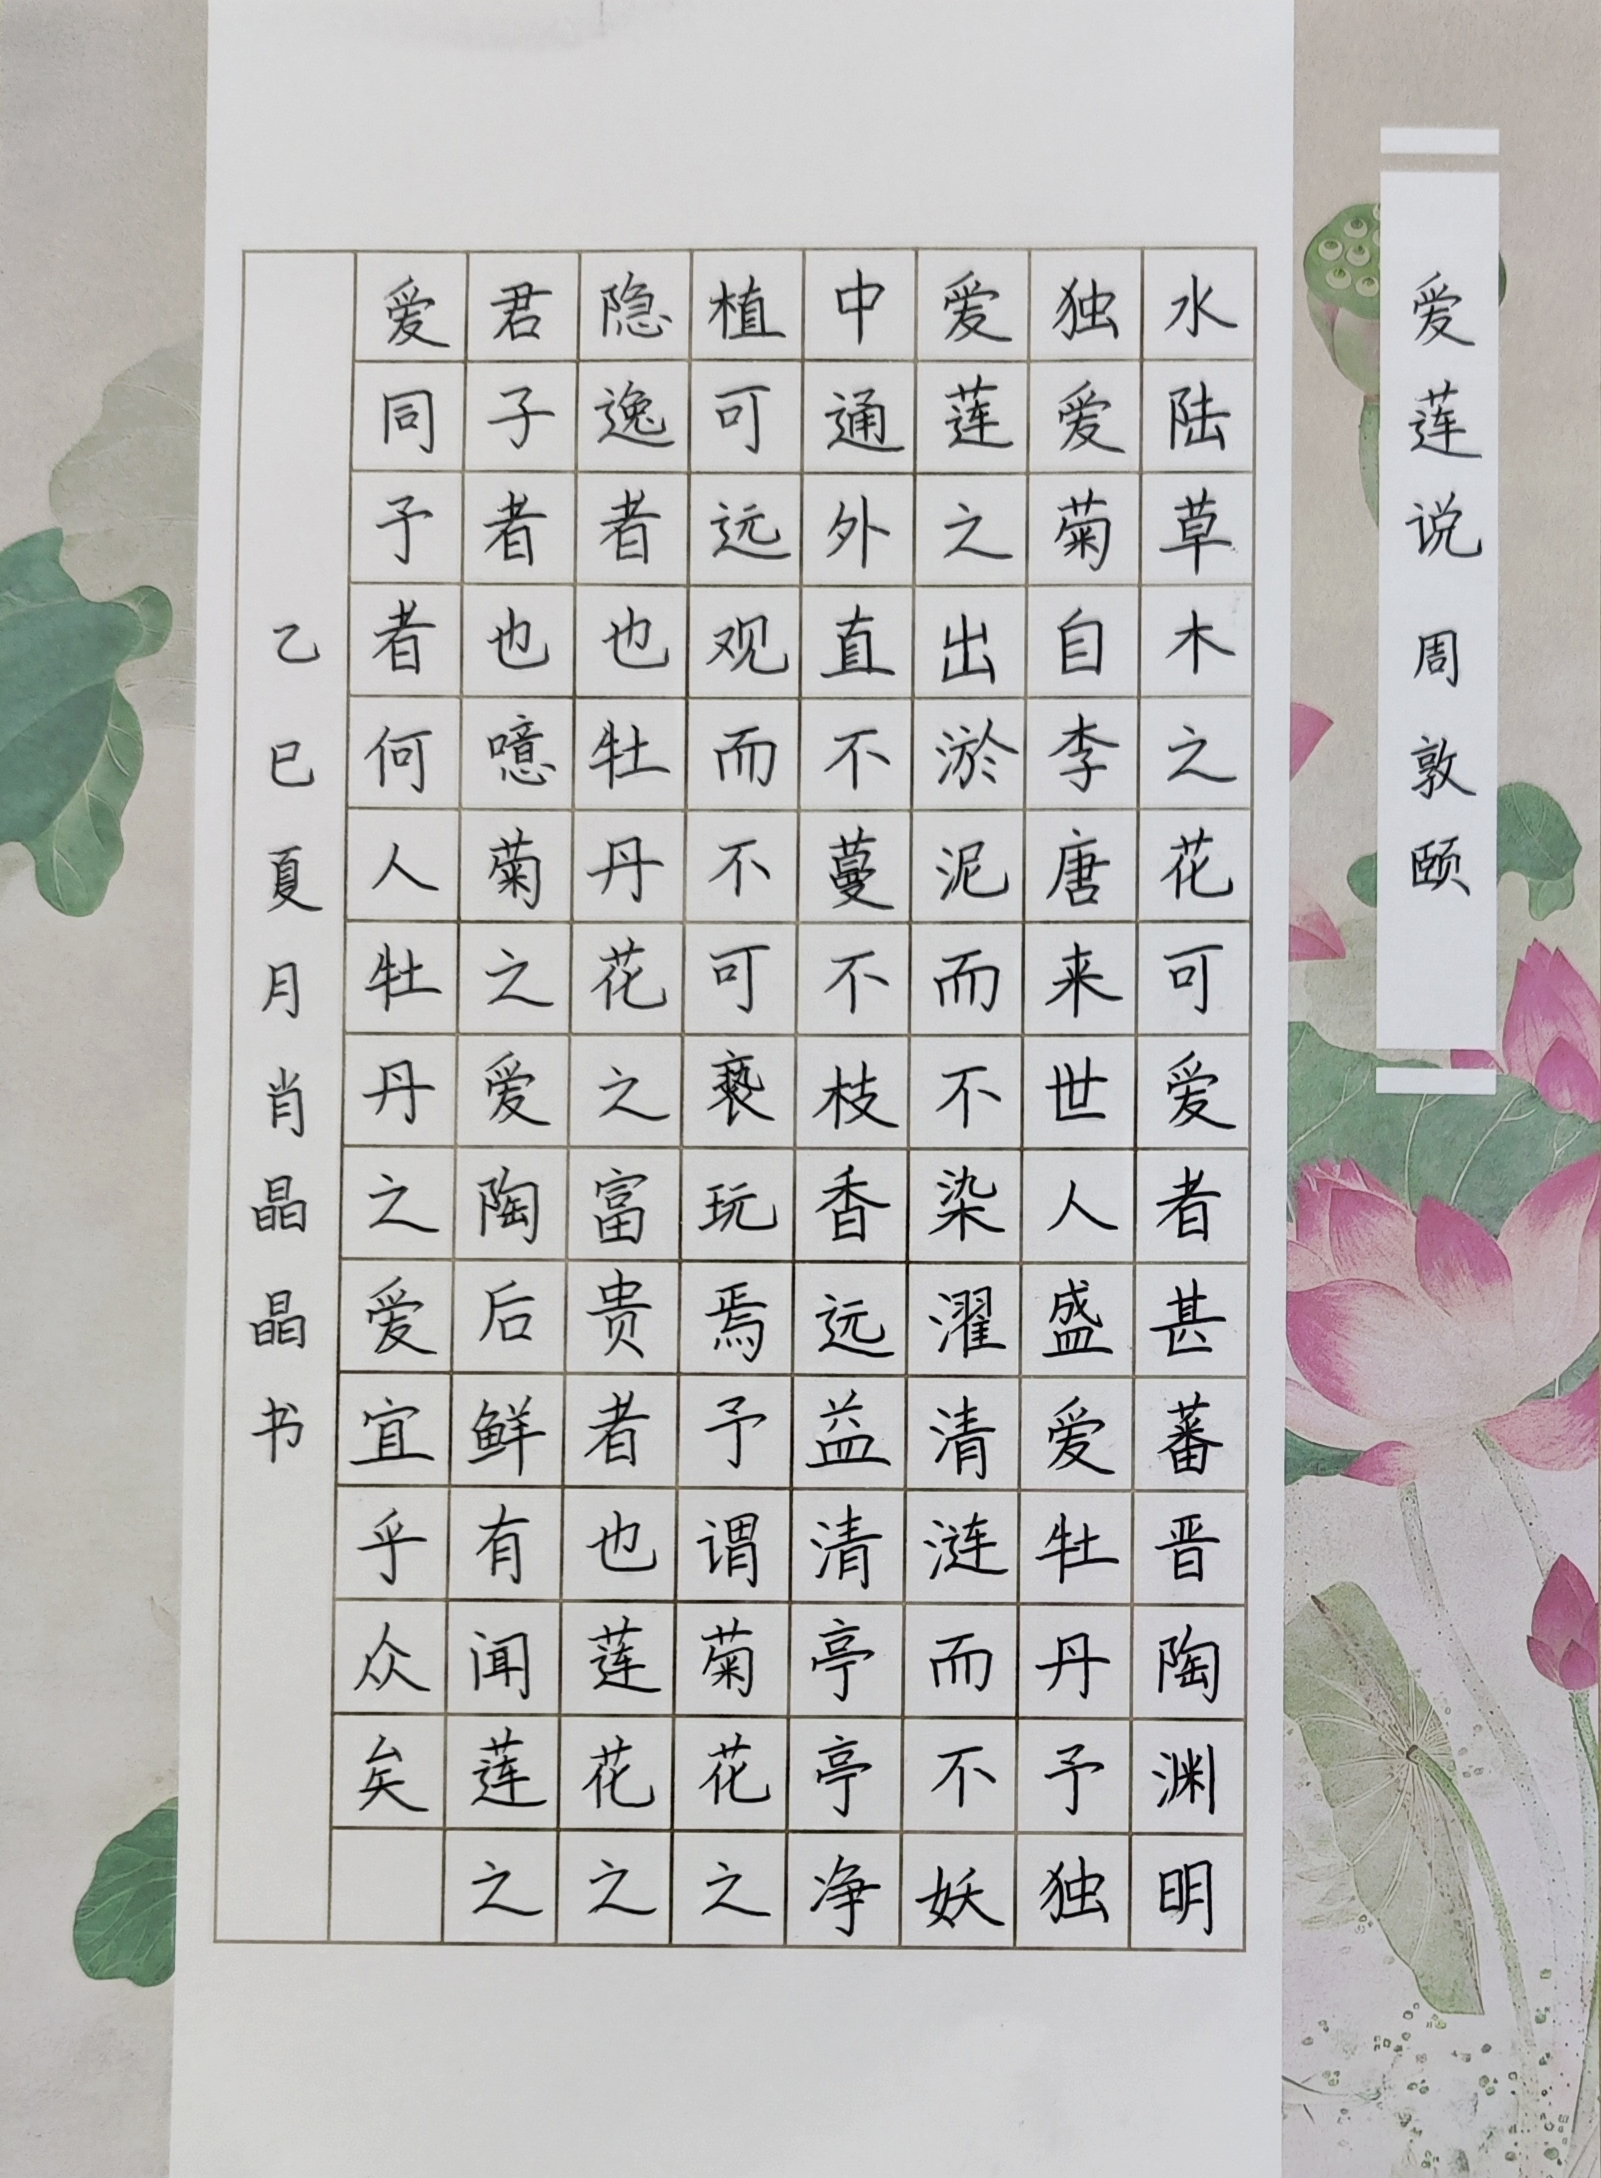 爱莲说 周敦颐
水陆草木之花可爱者甚蕃晋陶渊明
独爱菊自李唐来世人盛爱牡丹予独
爱莲之出淤泥而不染濯清涟而不妖
中通外直不蔓不枝香远益清亭亭净
植可远观而不可亵玩焉予谓菊花之
隐逸者也牡丹花之富贵者也莲花之
君子者也噫菊之爱陶后鲜有闻莲之
爱同予者何人牡丹之爱宜乎众矣
乙巳夏月肖晶晶书